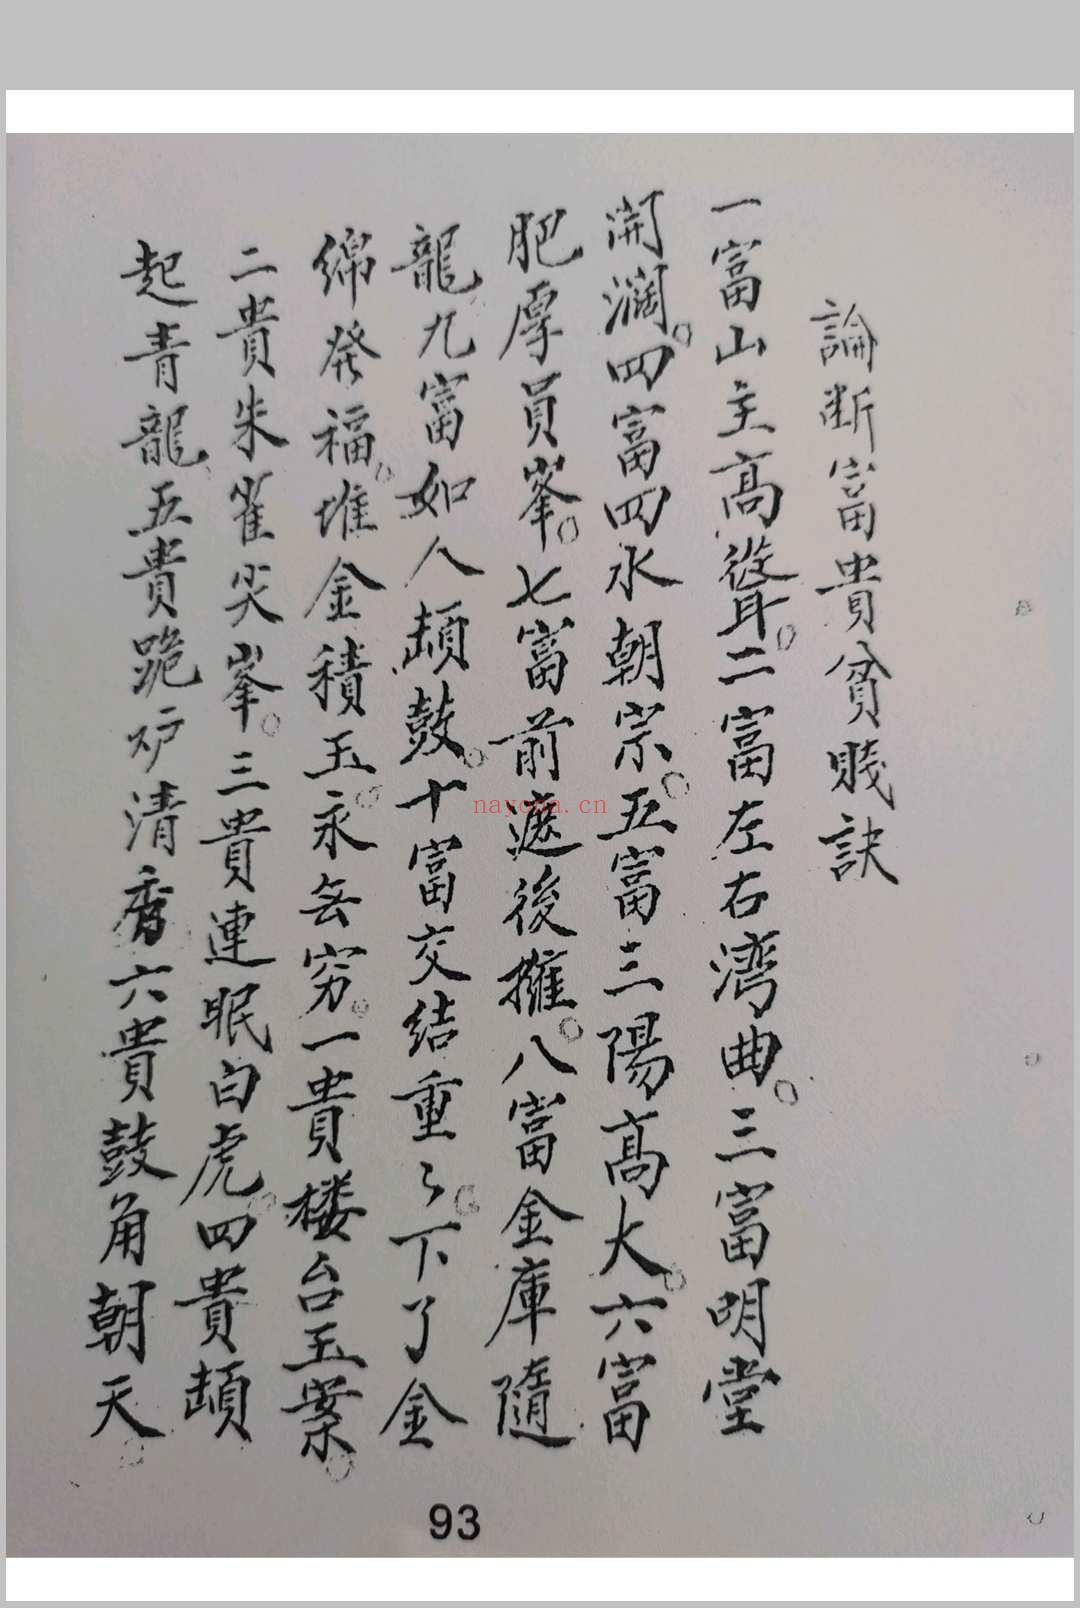 論断富貴貧賤訣
一富山主高聳。二富左右湾曲。三富明堂
開濶。四富四水朝宗。五富三陽高大。六富
肥厚員峯。七富前遮後擁。八富金庫隨
龍九富如人頡鼓。十富交結重〻。下了金
綿發福。堆金積玉永無穷。一貴楼台玉案。
二貴朱雀尖峯。三貴連眠白虎。四貴頡
起青龍五貴跪炉清香六貴鼓角朝天。
93
nayona.cn